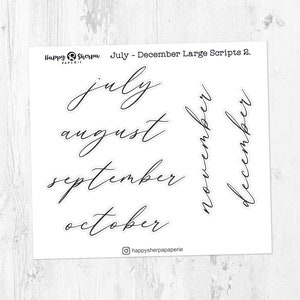 Happy Sherpa
PAPERIE
July - December Large Scripts 2.
july
august
september
october
november
december
happysherpapaperie